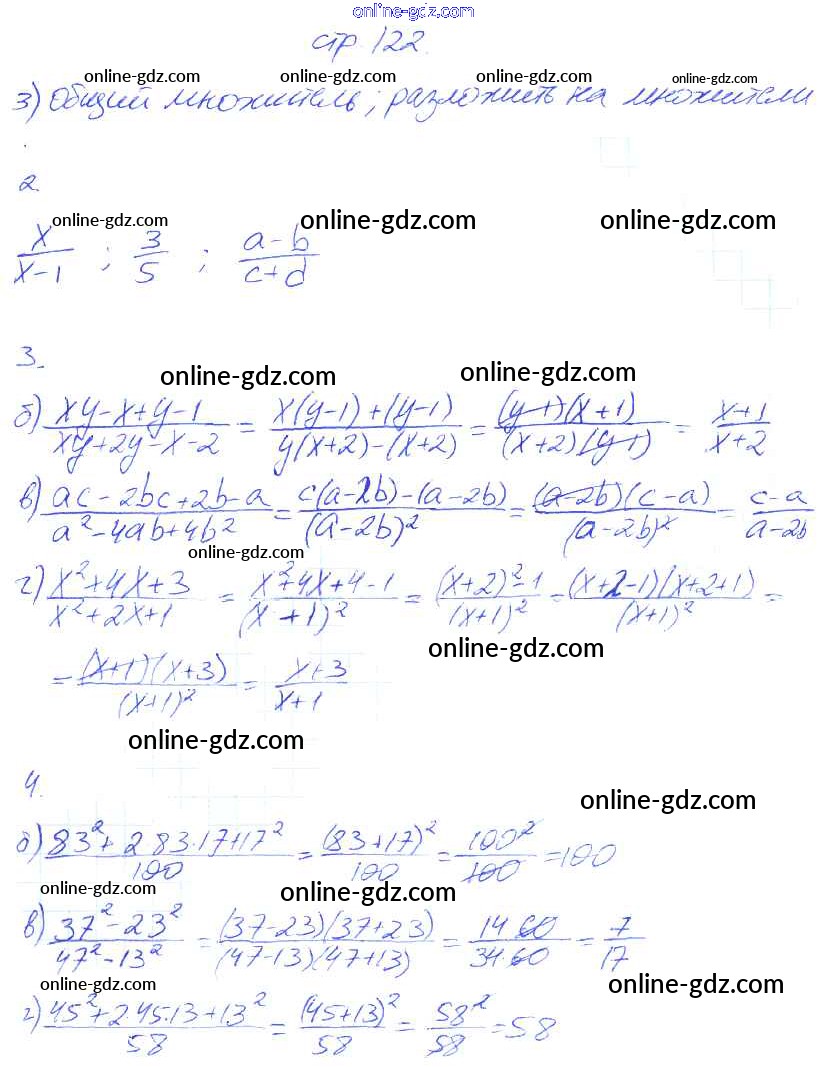 online-gdz.com
стр. 122.
online-gdz.com online-gdz.com online-gdz.com online-gdz.com
3) Общий множитель; разложить на множители
2.
online-gdz.com online-gdz.com online-gdz.com
x/(x-1) ; 3/5 ; (a-b)/(c+d)
3.
online-gdz.com online-gdz.com
б) (xy-x+y-1)/(xy+2y-x-2) = (x(y-1)+(y-1))/(y(x+2)-(x+2)) = ((y-1)(x+1))/((x+2)(y-1)) = (x+1)/(x+2)
в) (ac-2bc+2b-a)/(a²-4ab+4b²) = (c(a-2b)-(a-2b))/(a-2b)² = ((a-2b)(c-a))/(a-2b)² = (c-a)/(a-2b)
online-gdz.com
г) (x²+4x+3)/(x²+2x+1) = (x²+4x+4-1)/(x+1)² = ((x+2)²-1)/(x+1)² = ((x+2-1)(x+2+1))/(x+1)² =
online-gdz.com
= ((x+1)(x+3))/(x+1)² = (x+3)/(x+1)
online-gdz.com
4.
online-gdz.com
б) (83²+2·83·17+17²)/100 = (83+17)²/100 = 100²/100 = 100
online-gdz.com online-gdz.com
в) (37²-23²)/(47²-13²) = ((37-23)(37+23))/((47-13)(47+13)) = (14·60)/(34·60) = 7/17
online-gdz.com online-gdz.com
г) (45²+2·45·13+13²)/58 = (45+13)²/58 = 58²/58 = 58